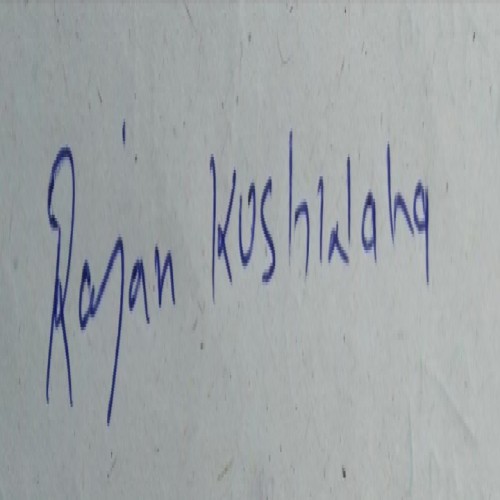 Rajan Kushwaha